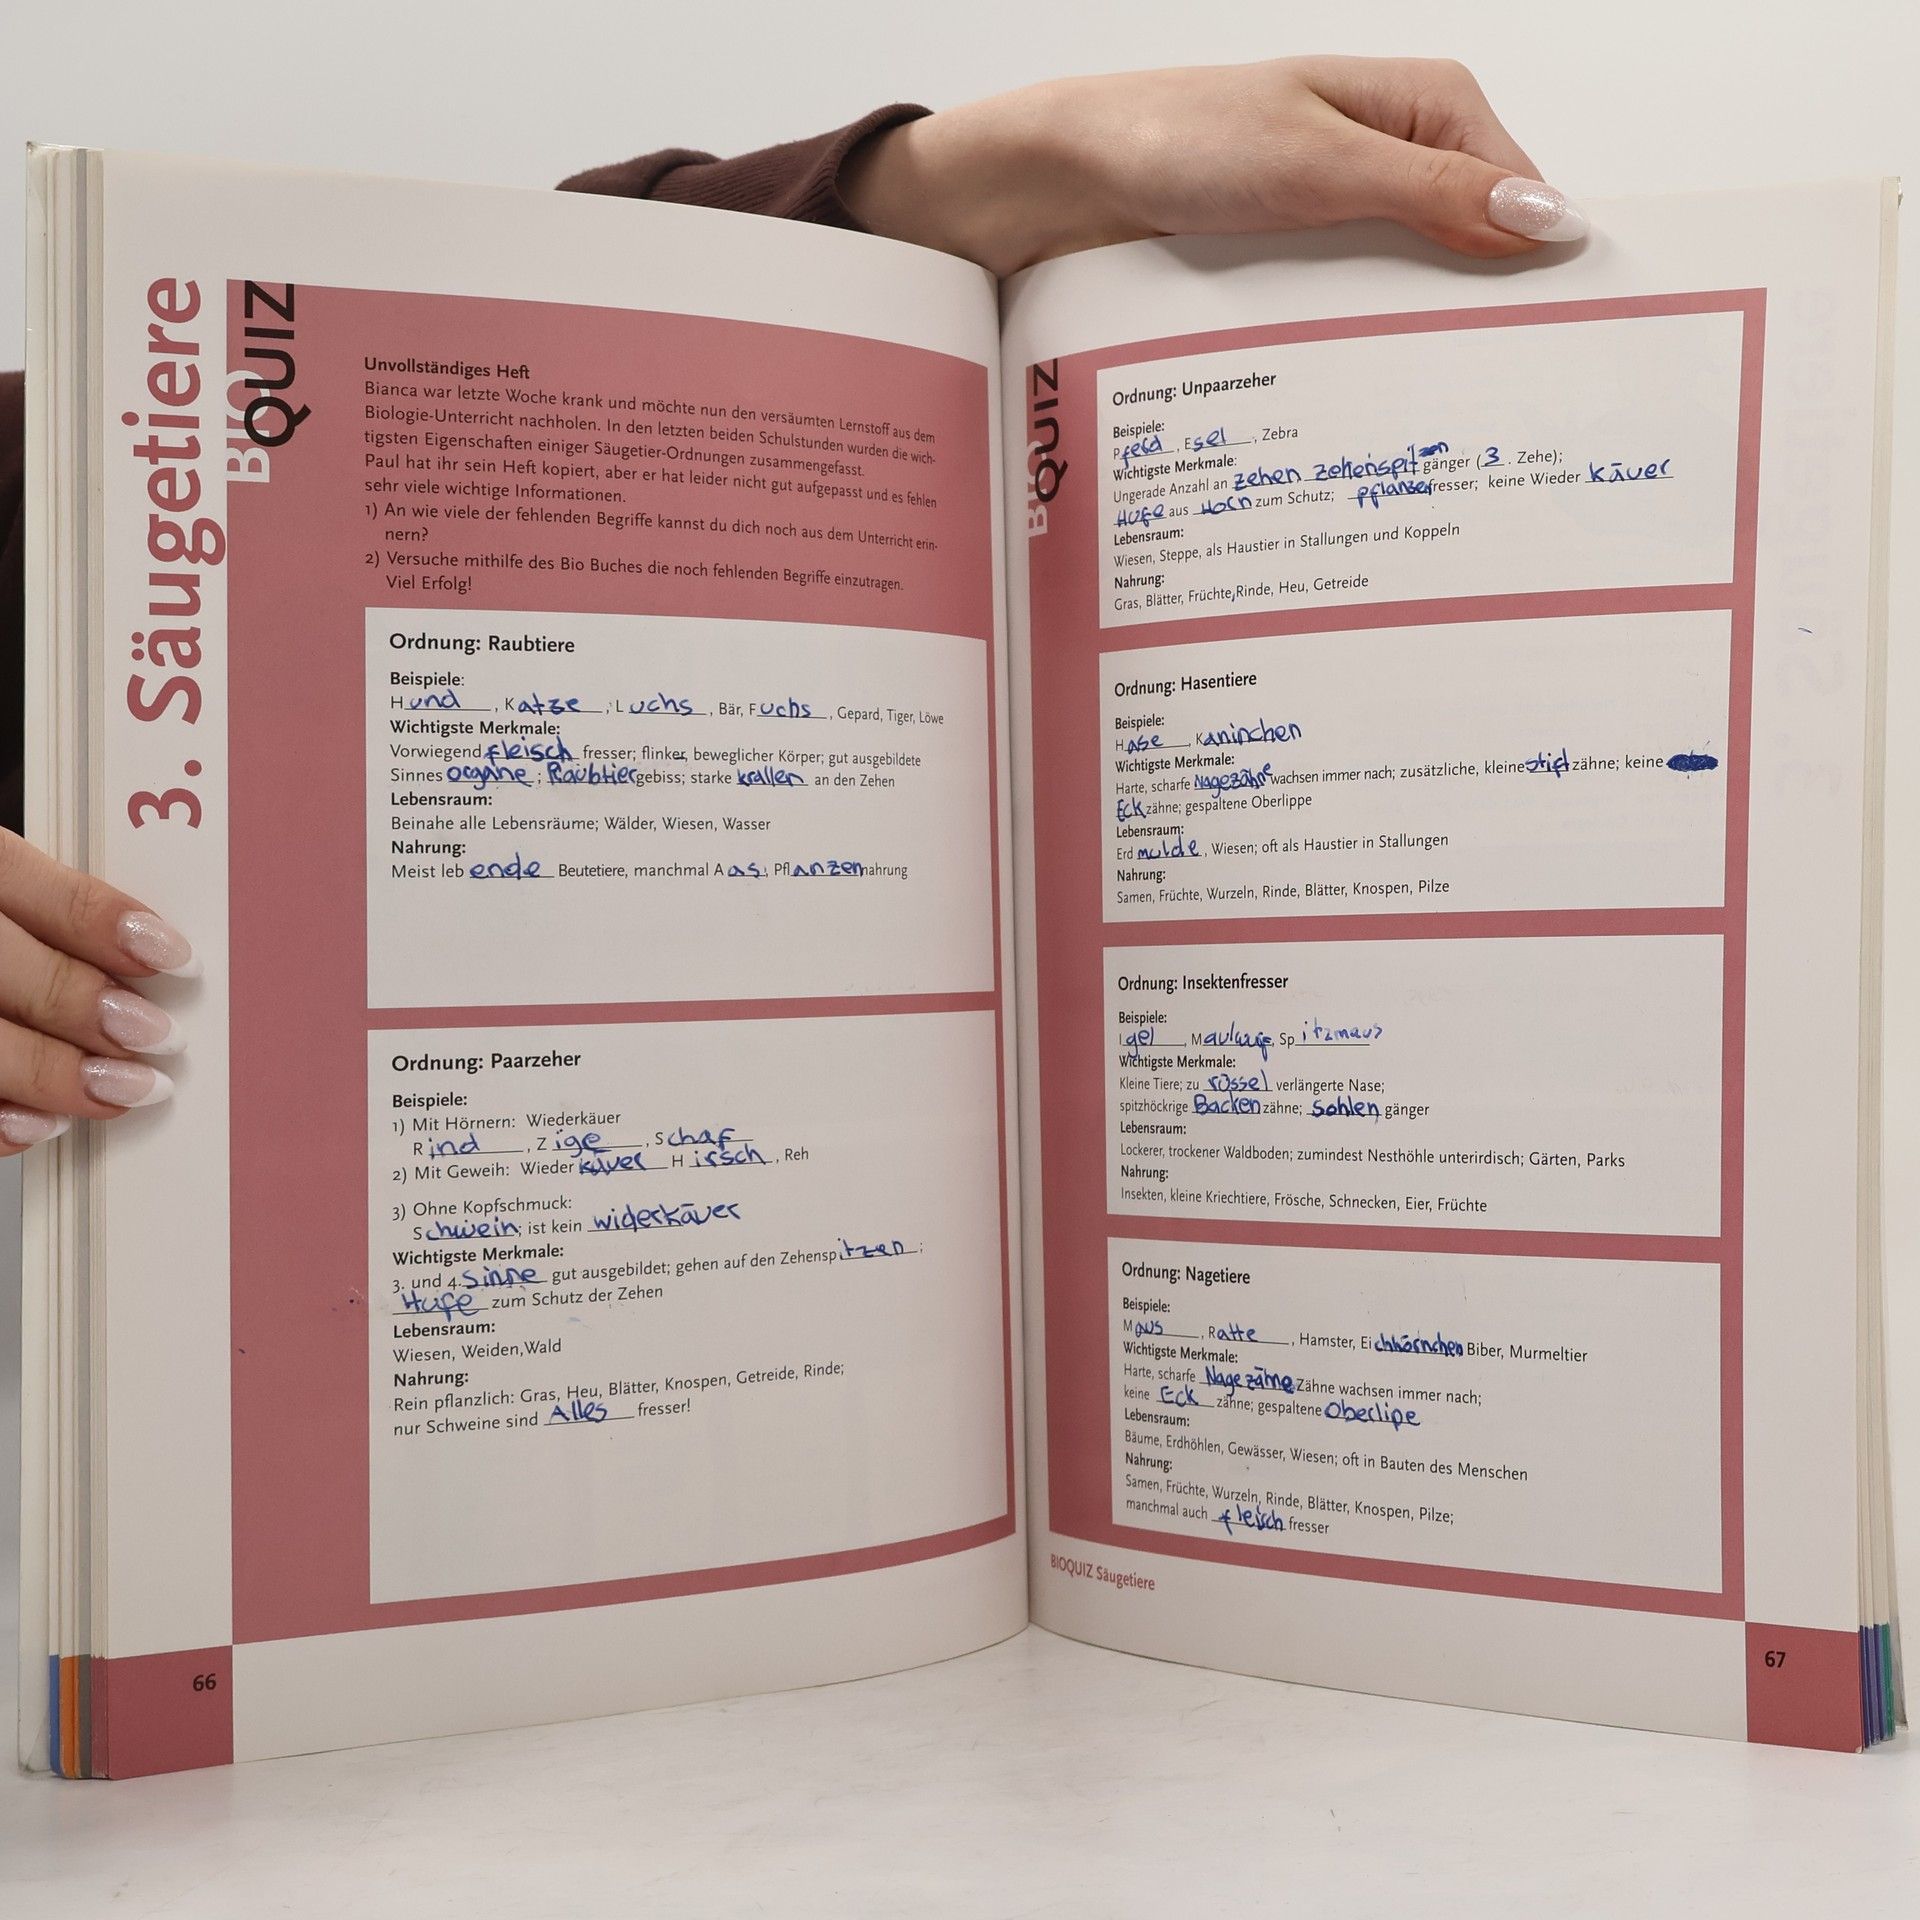 3. Säugetiere
BIO
QUIZ
Unvollständiges Heft
Bianca war letzte Woche krank und möchte nun den versäumten Lernstoff aus dem
Biologie-Unterricht nachholen. In den letzten beiden Schulstunden wurden die wich-
tigsten Eigenschaften einiger Säugetier-Ordnungen zusammengefasst.
Paul hat ihr sein Heft kopiert, aber er hat leider nicht gut aufgepasst und es fehlen
sehr viele wichtige Informationen.
1) An wie viele der fehlenden Begriffe kannst du dich noch aus dem Unterricht erin-
nern?
2) Versuche mithilfe des Bio Buches die noch fehlenden Begriffe einzutragen.
Viel Erfolg!
Ordnung: Raubtiere
Beispiele:
Hund, Katze, Luchs, Bär, Fuchs, Gepard, Tiger, Löwe
Wichtigste Merkmale:
Vorwiegend fleisch fresser; flinker, beweglicher Körper; gut ausgebildete
Sinnes organe; Raubtiergebiss; starke krallen an den Zehen
Lebensraum:
Beinahe alle Lebensräume; Wälder, Wiesen, Wasser
Nahrung:
Meist leb ende Beutetiere, manchmal Aas, Pflanzennahrung
Ordnung: Paarzeher
Beispiele:
1) Mit Hörnern: Wiederkäuer
Rind, Zige, Schaf
2) Mit Geweih: Wieder käuer Hirsch, Reh
3) Ohne Kopfschmuck:
Schwein; ist kein widerkäuer
Wichtigste Merkmale:
3. und 4. Sinne gut ausgebildet; gehen auf den Zehenspitzen;
Hufe zum Schutz der Zehen
Lebensraum:
Wiesen, Weiden, Wald
Nahrung:
Rein pflanzlich: Gras, Heu, Blätter, Knospen, Getreide, Rinde;
nur Schweine sind Alles fresser!
66
BIO
QUIZ
Ordnung: Unpaarzeher
Beispiele:
Pferd, Esel, Zebra
Wichtigste Merkmale:
Ungerade Anzahl an zehen zehenspitzengänger (3. Zehe);
Hufe aus Horn zum Schutz; pflanzenfresser; keine Wieder käuer
Lebensraum:
Wiesen, Steppe, als Haustier in Stallungen und Koppeln
Nahrung:
Gras, Blätter, Früchte, Rinde, Heu, Getreide
Ordnung: Hasentiere
Beispiele:
Hase, Kaninchen
Wichtigste Merkmale:
Harte, scharfe Nagezähne wachsen immer nach; zusätzliche, kleine stift zähne; keine
Eck zähne; gespaltene Oberlippe
Lebensraum:
Erd mulde, Wiesen; oft als Haustier in Stallungen
Nahrung:
Samen, Früchte, Wurzeln, Rinde, Blätter, Knospen, Pilze
Ordnung: Insektenfresser
Beispiele:
Igel, Maulwurf, Spitzmaus
Wichtigste Merkmale:
Kleine Tiere; zu rüssel verlängerte Nase;
spitzhöckrige Backen zähne; sohlen gänger
Lebensraum:
Lockerer, trockener Waldboden; zumindest Nesthöhle unterirdisch; Gärten, Parks
Nahrung:
Insekten, kleine Kriechtiere, Frösche, Schnecken, Eier, Früchte
Ordnung: Nagetiere
Beispiele:
Maus, Ratte, Hamster, Eichhörnchen Biber, Murmeltier
Wichtigste Merkmale:
Harte, scharfe Nagezähne Zähne wachsen immer nach;
keine Eck zähne; gespaltene Oberlipe
Lebensraum:
Bäume, Erdhöhlen, Gewässer, Wiesen; oft in Bauten des Menschen
Nahrung:
Samen, Früchte, Wurzeln, Rinde, Blätter, Knospen, Pilze;
manchmal auch fleisch fresser
BIOQUIZ Säugetiere
67